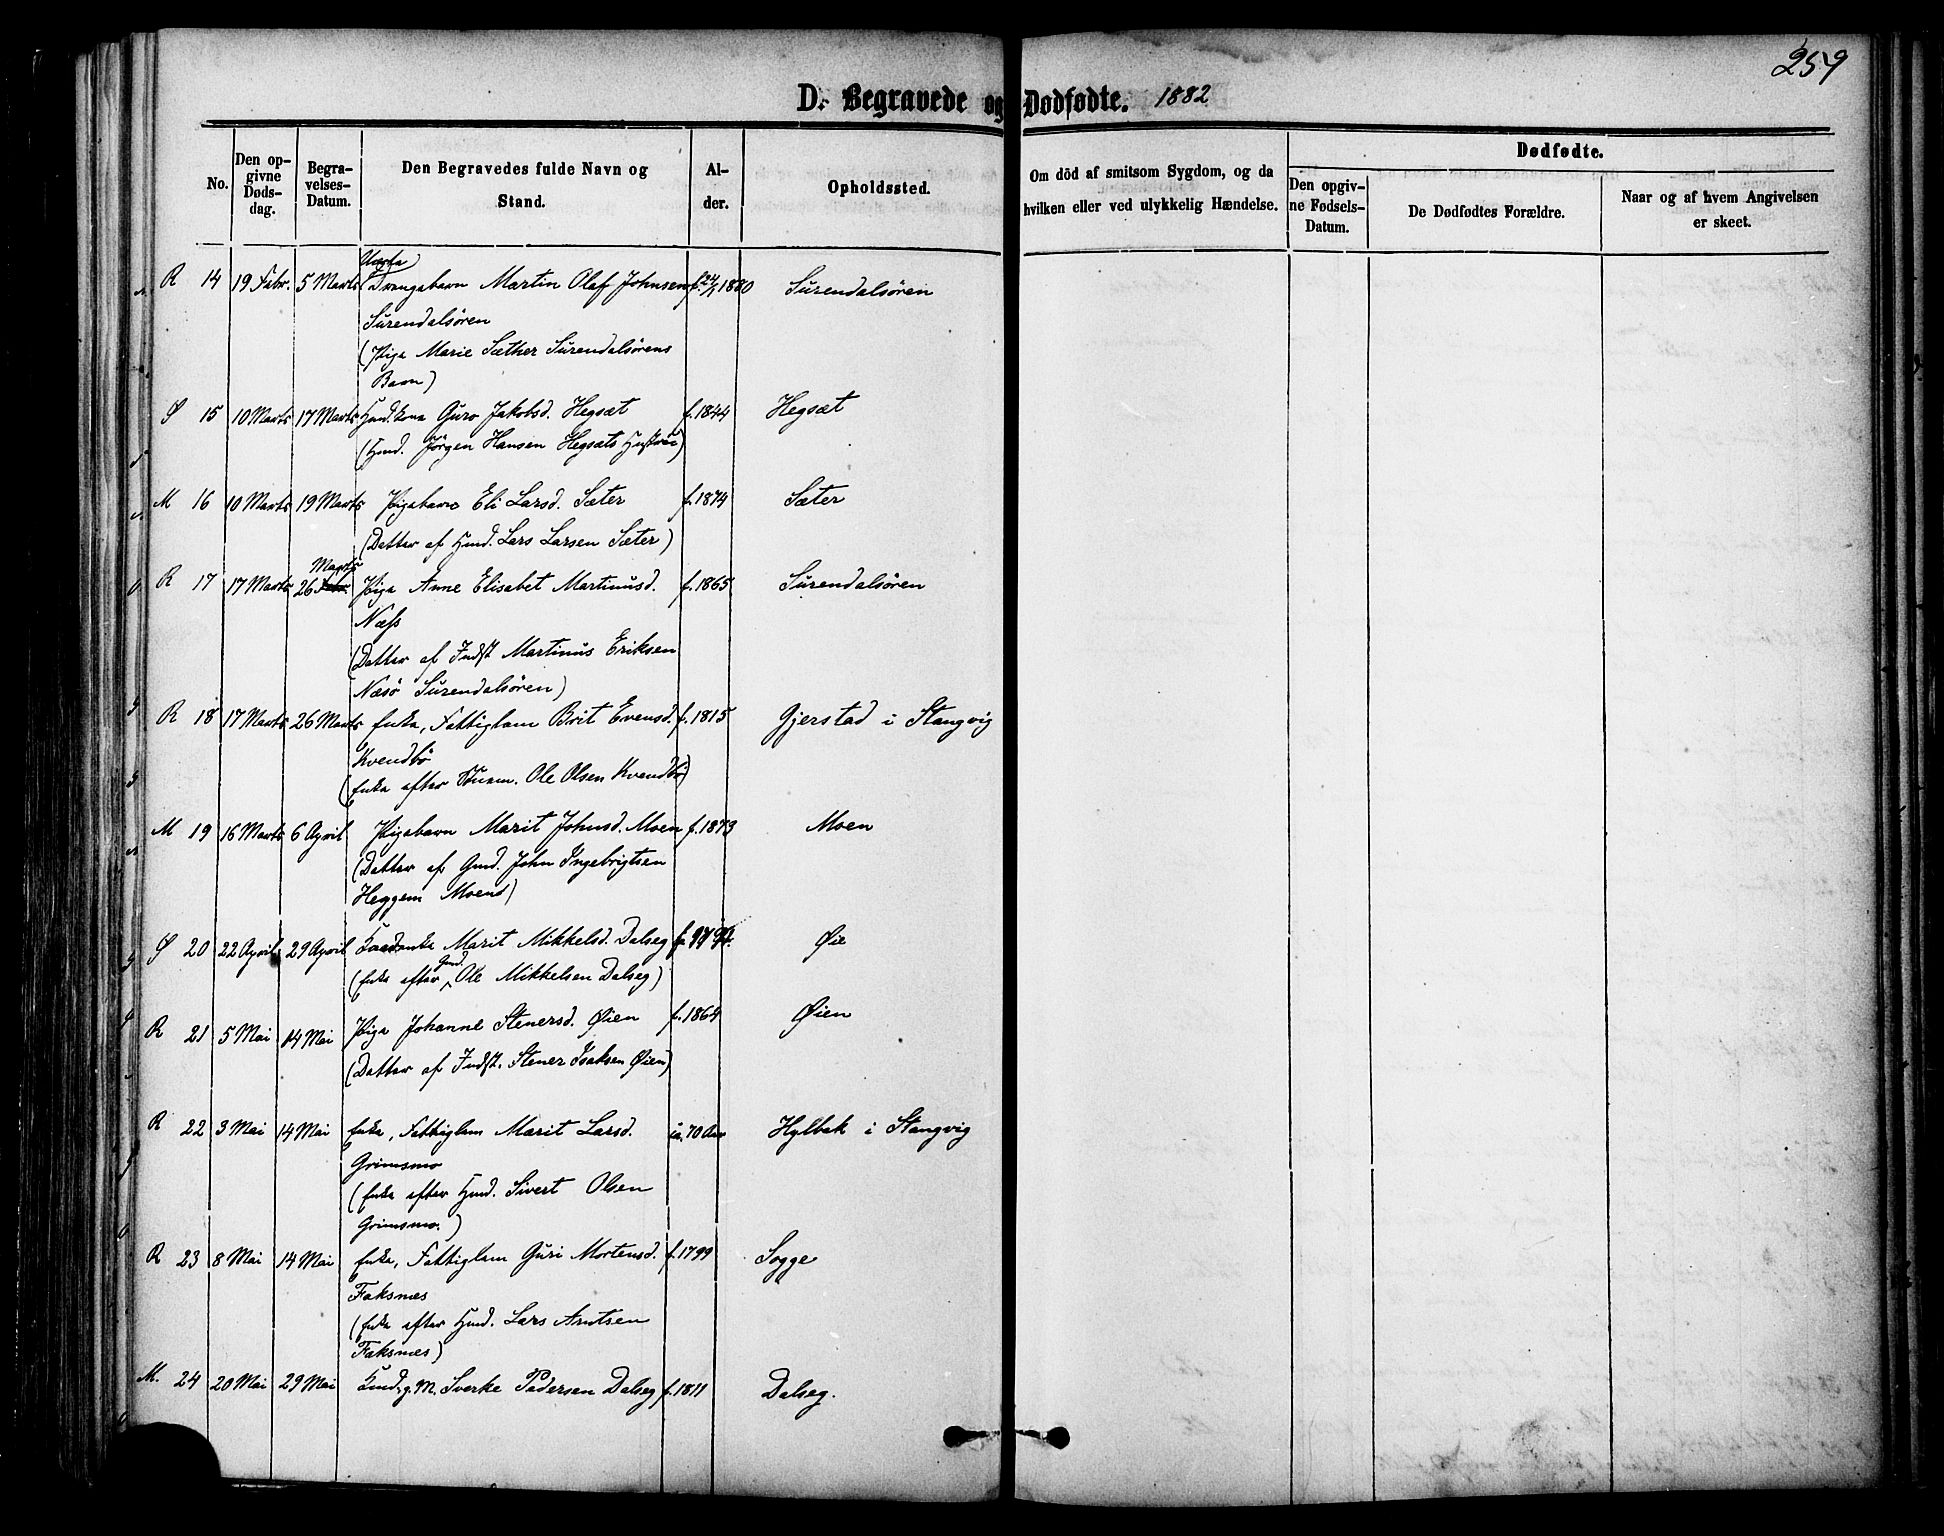 259
D. Begravede og Dødfødte. 1882
No.
Den opgivne Dødsdag.
Begravelses-Datum.
Den Begravedes fulde Navn og Stand.
Alder.
Opholdssted.
Om död af smitsom Sygdom, og da hvilken eller ved ulykkelig Hændelse.
Dødfødte.
Den opgivne Fødsels-Datum.
De Dødfødtes Forældre.
Naar og af hvem Angivelsen er skeet.
Uægte
R 14 19 Febr. 5 Marts Drengebarn Martin Olaf Johnsen f. 24/1 1880 Surendalsören
Surendalsören
(Pige Marie Sæther Surendalsörens
Barn)
S 15 10 Marts 17 Marts Gmd.kone Guro Jakobsd. Hegsæt f. 1844 Hegsæt
(Gmd. Jörgen Hansen Hegsæts Hustru)
M 16 10 Marts 19 Marts Pigebarn Eli Larsd. Sæter f. 1874 Sæter
(Datter af Gmd. Lars Larsen Sæter)
Marts
R 17 17 Marts 26 Febr. Pige Anne Elisabet Martinusd. f. 1865 Surendalsören
Næss
(Datter af Indst Martinus Eriksen
Næsö Surendalsören)
R 18 17 Marts 26 Marts Enke, Fattiglem Brit Evensd. f. 1815 Gjerstad i Stangvig
Kvendbö
(Enke efter Ole Olsen Kvendbö)
M 19 16 Marts 6 April Pigebarn Marit Johnsd. Moen f. 1873 Moen
(Datter af Gmd. John Ingebrigtsen
Heggem Moens)
S 20 22 April 29 April Marit Mikkelsd. Dalseg Øie
(Enke efter Gmd. Ole Mikkelsen Dalseg)
R 21 5 Mai 14 Mai Pige Johanne Stenersd. Øien f. 1864 Øien
(Datter af Indst. Stener Isaksen Øien)
R 22 3 Mai 14 Mai Enke, Fattiglem Marit Larsd. ca. 70 Aar Hylbak i Stangvig
Grimsmo
(Enke efter Gmd. Sivert Olsen
Grimsmo.)
R 23 8 Mai 14 Mai Enke, Fattiglem Guri Mortensd. f. 1799 Sogge
Faksnes
(Enke efter Gmd. Lars Arntsen
Faksnes)
M. 24 20 Mai 29 Mai g. M. Sverke Pedersen Dalseg f. 1811 Dalseg.